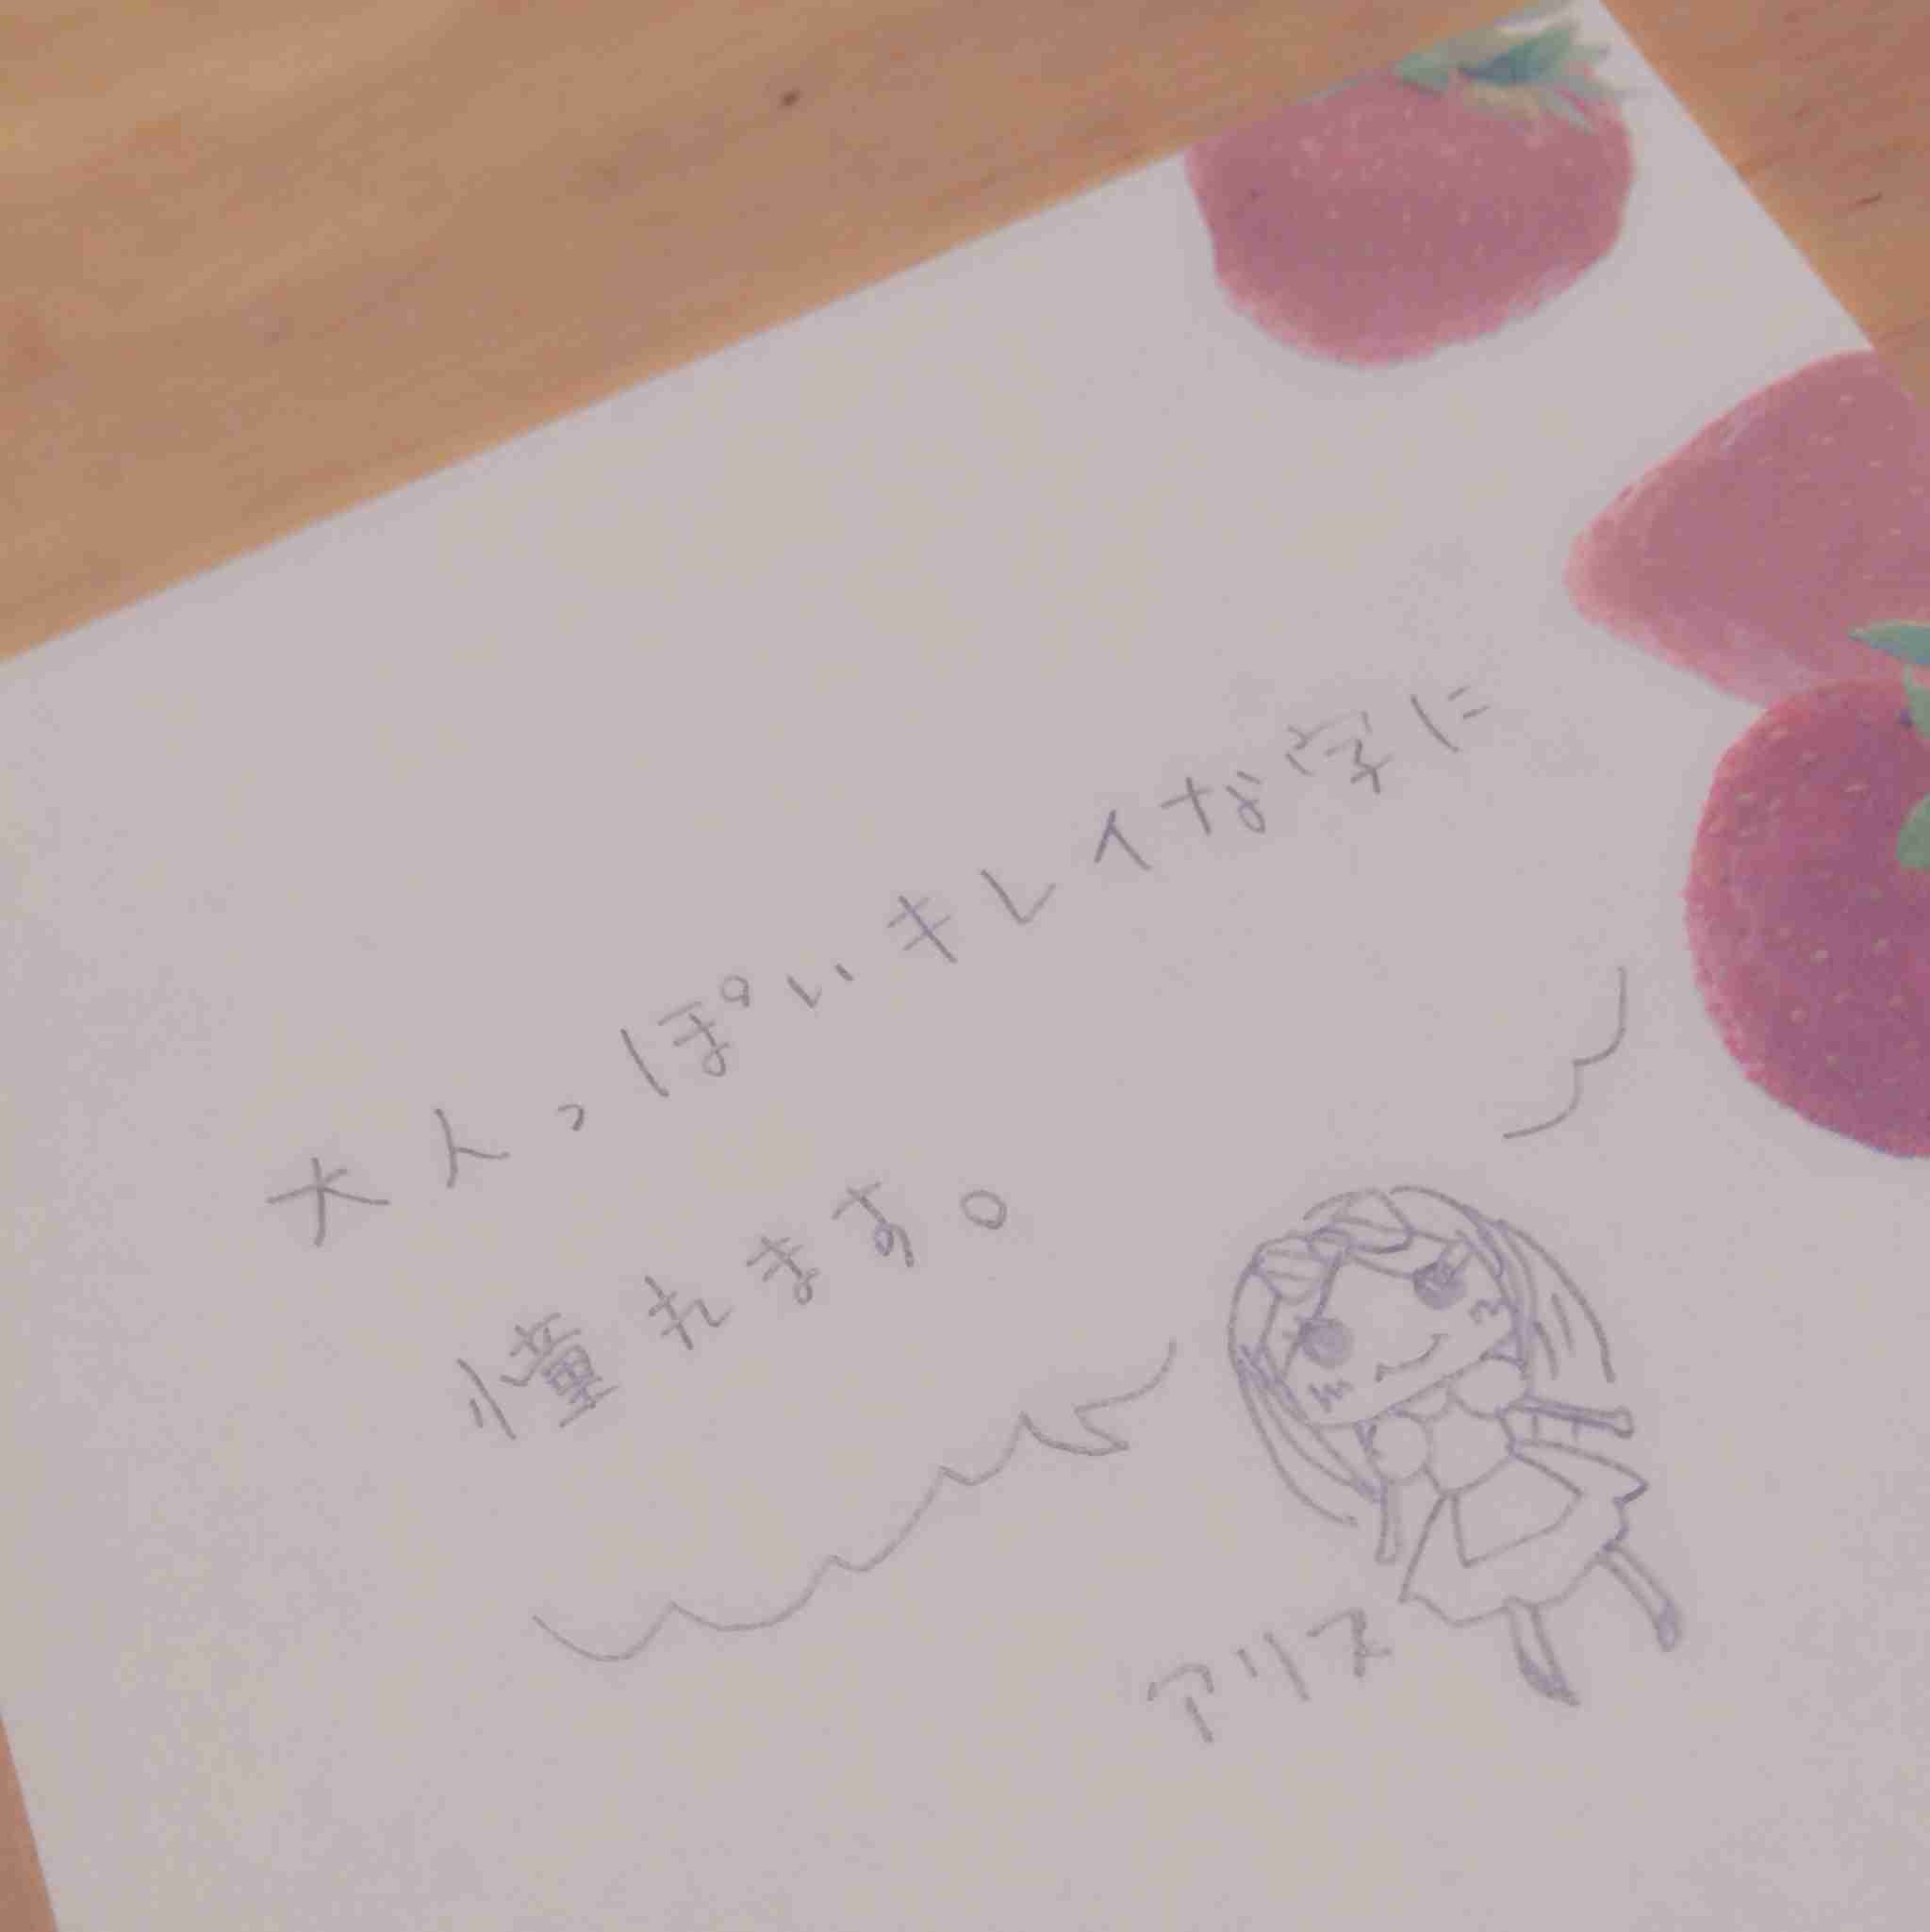 大人っぽいキレイな字に
憧れます。
アリス